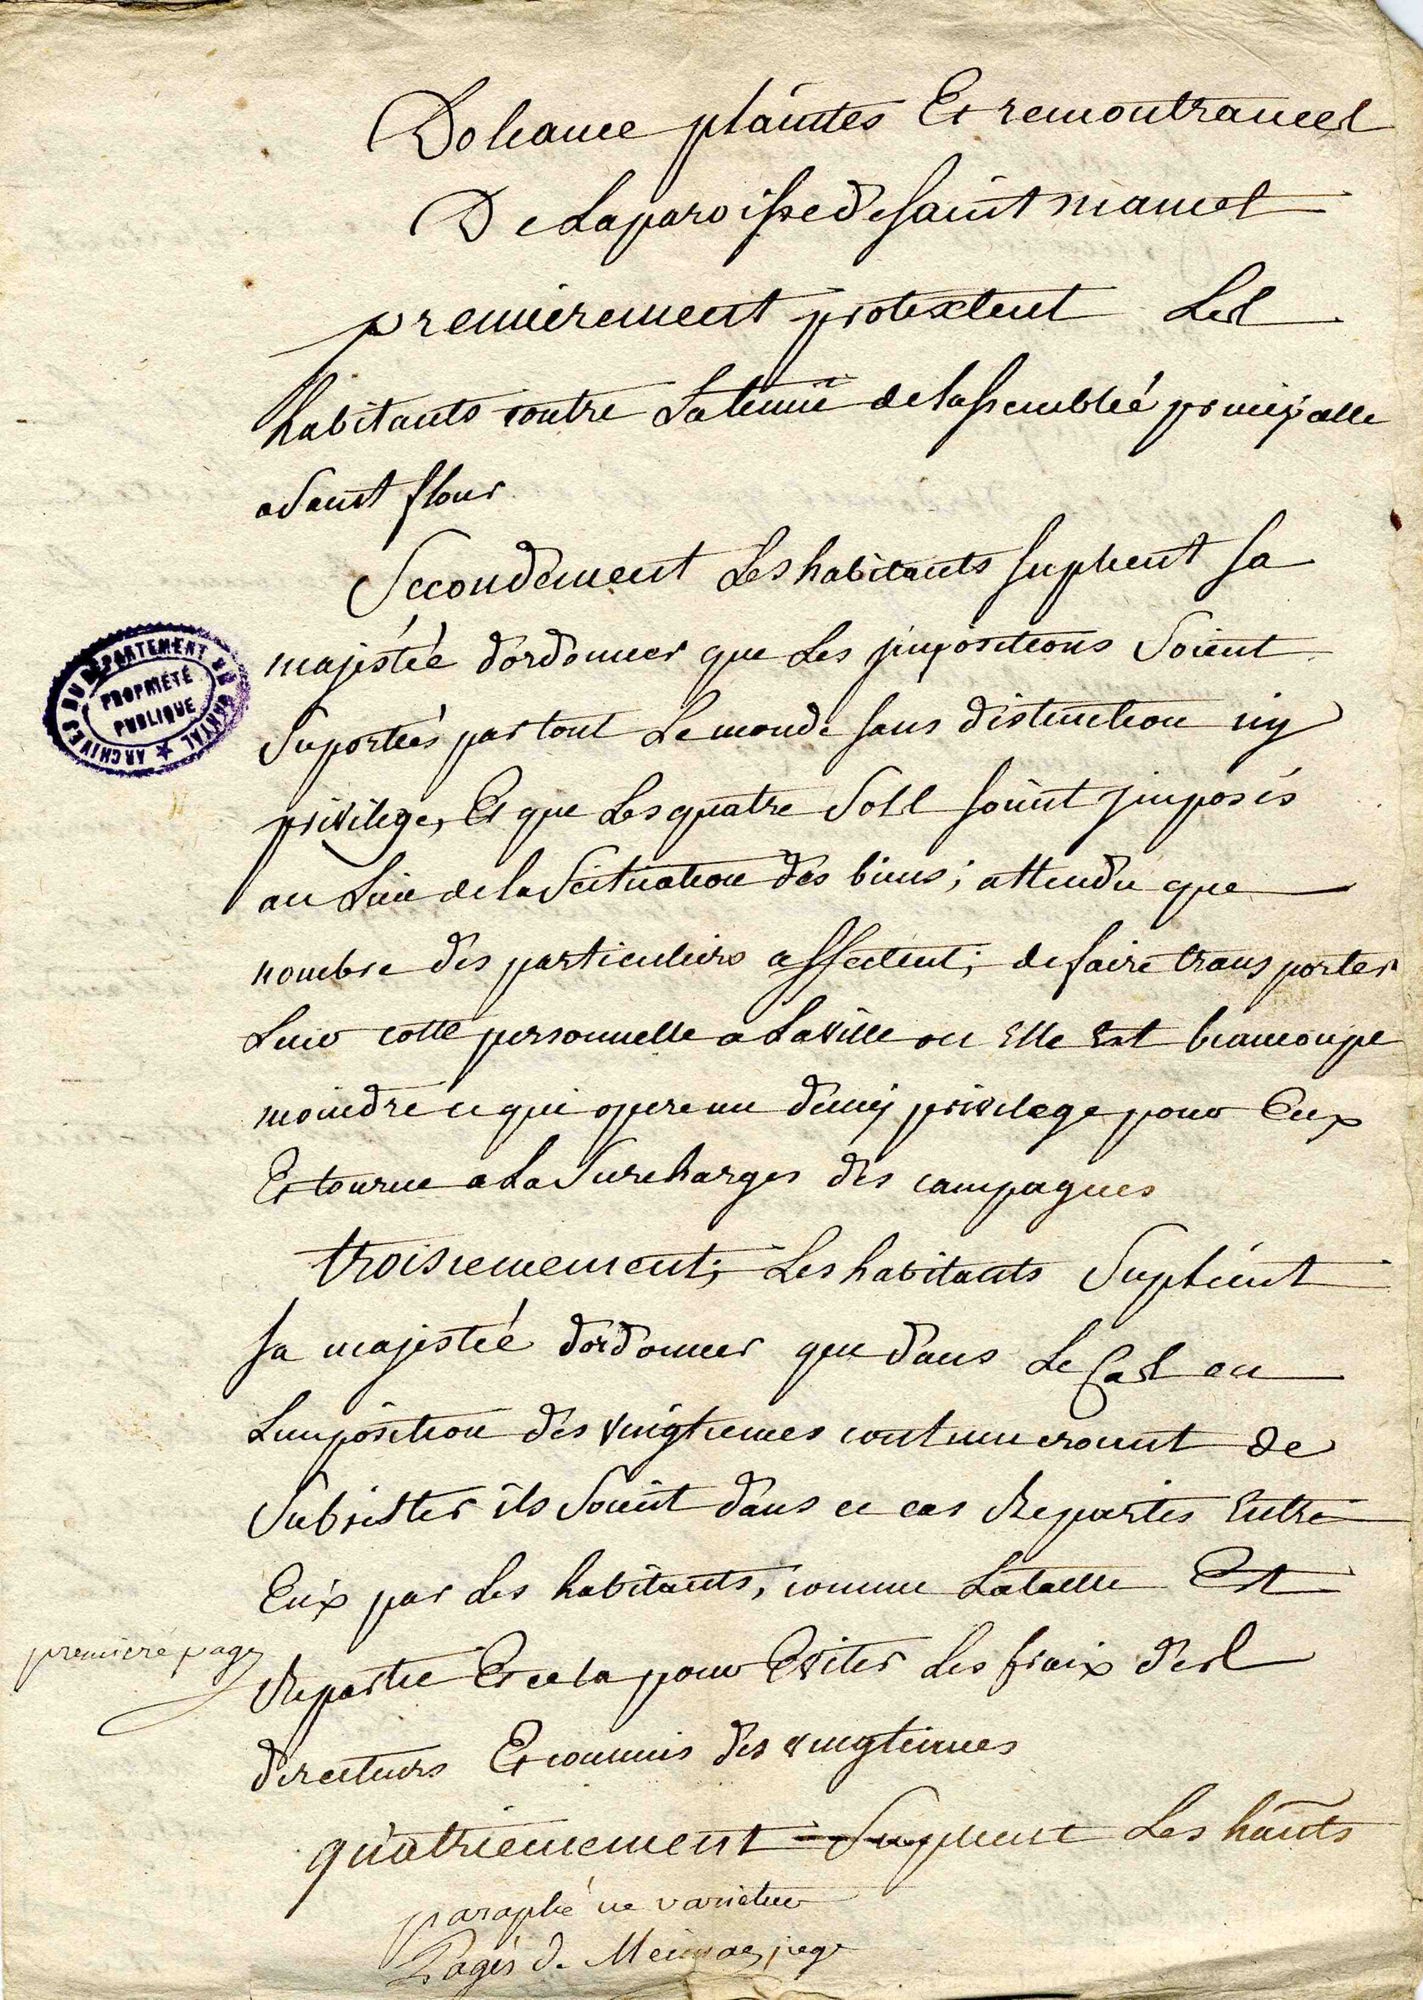 Doleance plaintes Et remontrances
De Laparoisse de saint mamet
premierement protextent Les
habitants contre Latenüe de lassemblée principalle
a Saint flour
Secondement Les habitants suplient sa
majestée dordonner que Les jmpositions Soient
Suportées par tout Le monde sans distinction ny
privilege, Et que Les quatre Sols soint jmposés
au Lieu de la Scituation des biens; attendu que
nombre des particuliers affectent; de faire transporter
Leur cotte personnelle a La ville ou Elle Est beaucoupt
moindre ce qui opere un demy privilege pour Eux
Et tourne a La Surcharges des campagnes
troisiemement; Les habitants Suplient
sa majestée dordonner que dans Le Cas ou
Limposition des vingtiemes continueroint de
Subsister ils Soint dans ce cas Reparties Entre
Eux par Les habitants, comme Lataille Est
Repartie Et cela pour Eviter Les fraix des
directeurs Et commis des vingtiemes
quatriemement Suplient Les hants
premiere page
paraphé ne varietur
Pagès de juge
ARCHIVES DU DÉPARTEMENT DU CANTAL
PROPRIÉTÉ
PUBLIQUE